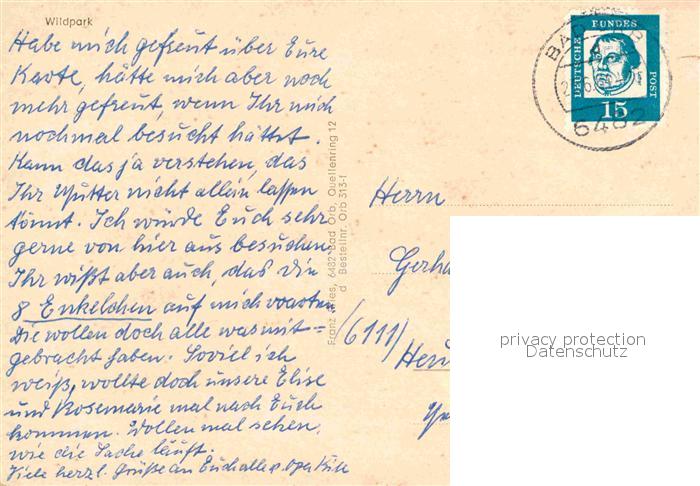 Wildpark
Habe mich gefreut über Eure
Karte, hätte mich aber noch
mehr gefreut, wenn Ihr mich
nochmal besucht hättet.
Kann das ja verstehen, das
Ihr Mutter nicht allein lassen
könnt. Ich würde Euch sehr
gerne von hier aus besuchen,
Ihr wißt aber auch, das die
8 Enkelchen auf mich warten
Die wollen doch alle was mit=
gebracht haben. Soviel ich
weiß, wollte doch unsere Elise
und Rosemarie mal nach Euch
kommen. Wollen mal sehen,
wie die Sache läuft.
Viele herzl. Grüße an Euch alle v. Opa
Franz 6482 Bad Orb, Quellenring 12
Bestellnr. Orb 313-f
DEUTSCHE BUNDES POST
15
BAD ORB
6482
Herrn
Gerha
(6111)
Heu
privacy protection
Datenschutz